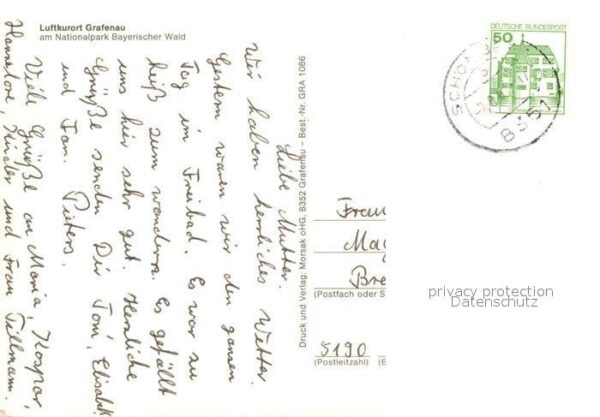 Luftkurort Grafenau
am Nationalpark Bayerischer Wald
Liebe Mutter.
Wir haben herrliches Wetter.
Gestern waren wir den ganzen
Tag im Freibad. Es war zu
heiß zum wandern. Es gefällt
uns hier sehr gut. Herzliche
Grüße senden Dir Toni, Elisabeth
und Fam. Peters.
Viele Grüße an Maria, Kaspar,
Hannelore, Kinder und Frau Tillmann.
Druck und Verlag: Morsak oHG, 8352 Grafenau – Best.-Nr. GRA 1086
DEUTSCHE BUNDESPOST
50
SCHÖN
8351
Frau
May
Bre
(Postfach oder S
5190
(Postleitzahl) (B
privacy protection
Datenschutz